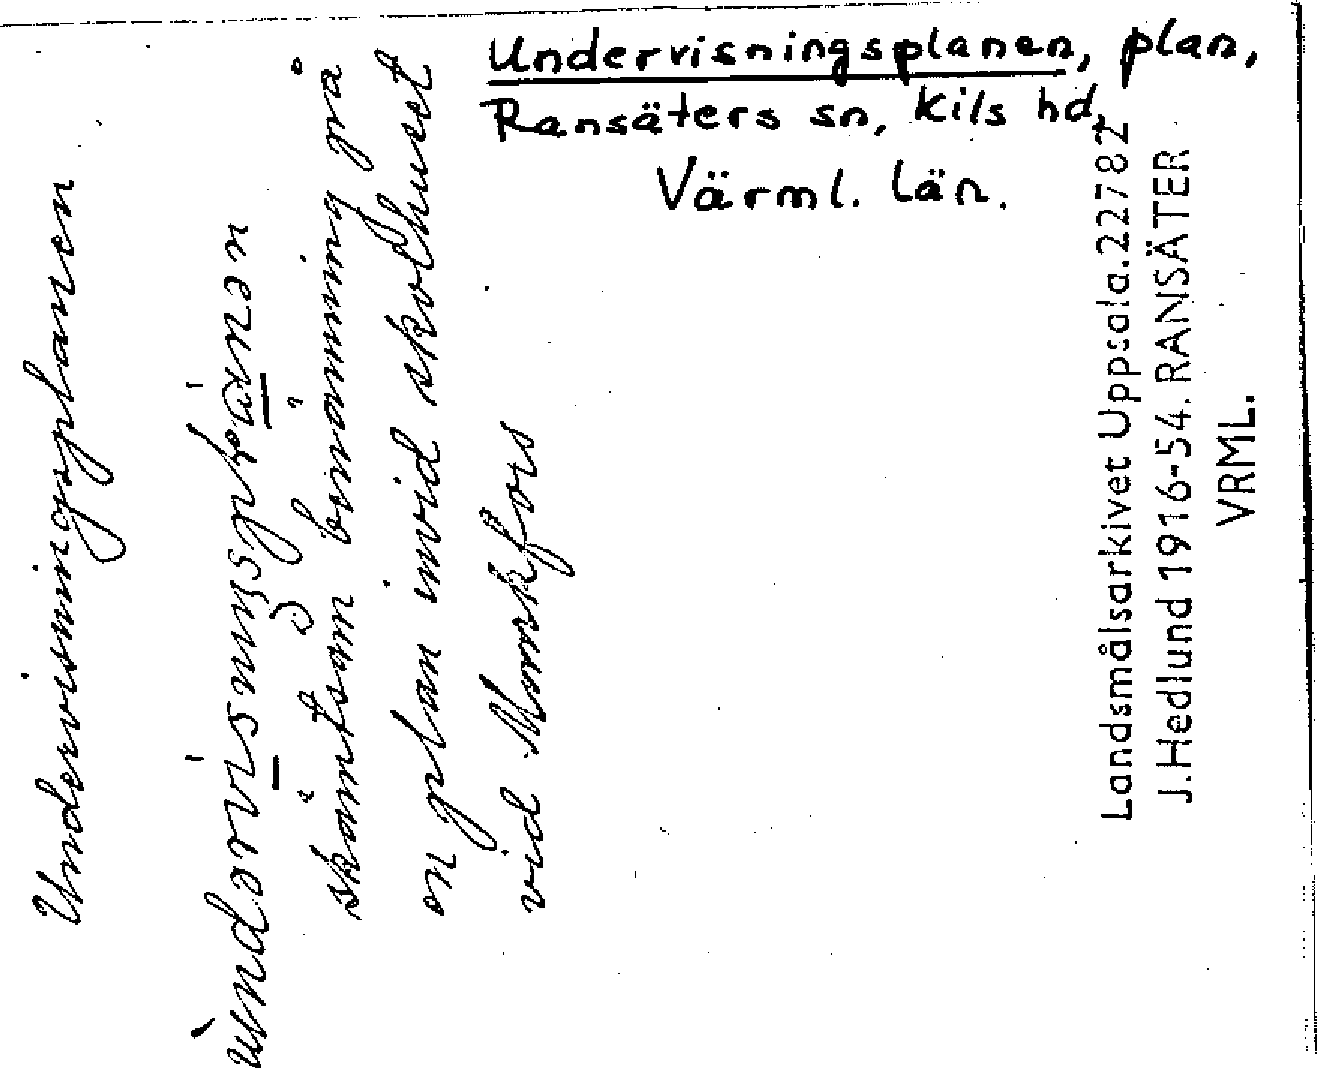 Undervisningsplanen, plan,
Ransäters sn, Kils hd,
Värml. län.
Undervisningsplanen
skämtsam benämning på
en plan invid skolhuset
vid Munkfors
Landsmålsarkivet Uppsala. 22782
J. Hedlund 1916-54. RANSÄTER
VRML.